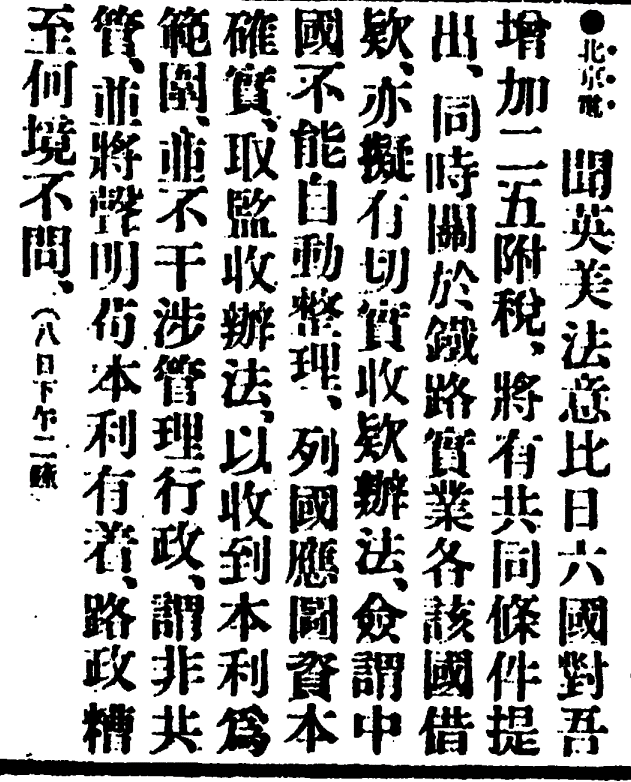 ●北京電　聞英美法意比日六國對吾
增加二五附稅、將有共同條件提
出、同時關於鐵路實業各該國借
欵、亦擬有切實收欵辦法、僉謂中
國不能自動整理、列國應圖資本
確實、取監收辦法、以收到本利爲
範圍、並不干涉管理行政、謂非共
管、並將聲明苟本利有着、路政糟
至何境不問、（八日下午二鐘